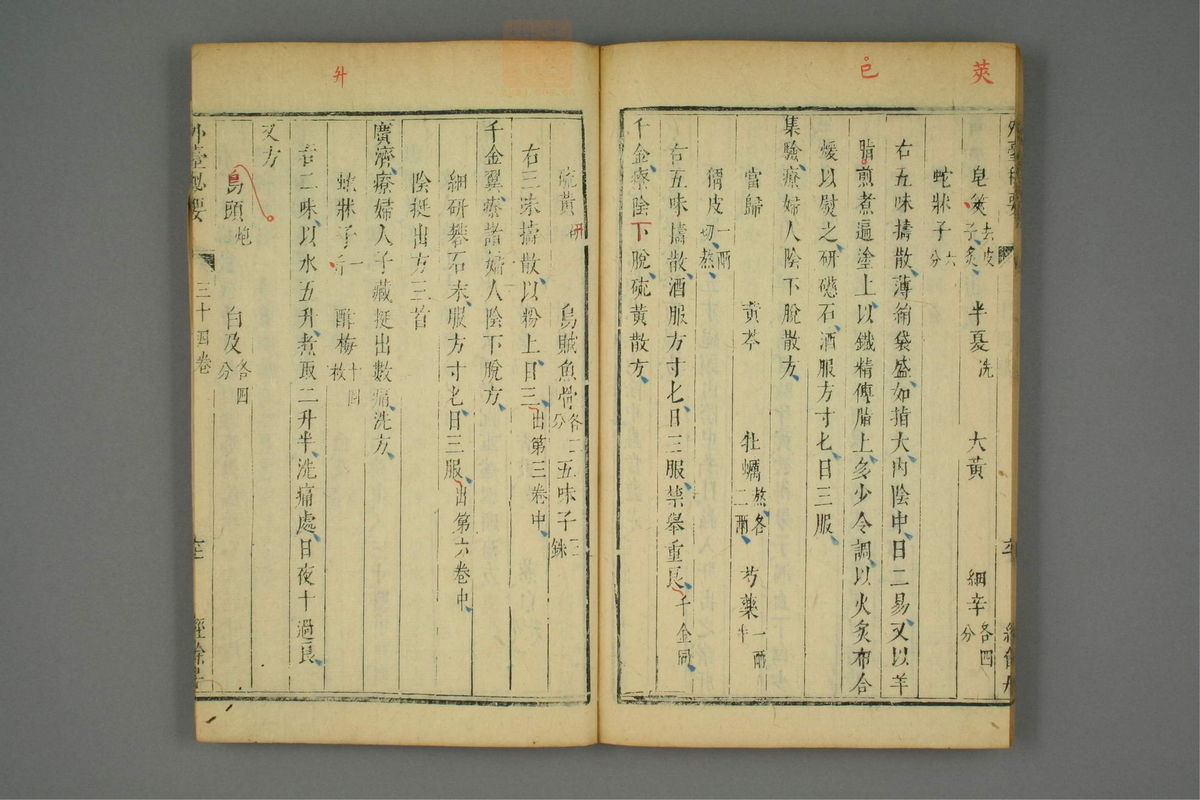 莢
皀
皂莢去皮子炙 半夏洗 大黄 細辛各四分
蛇牀子六分
右五味擣散薄綿袋盛如指大内陰中日二易又以羊
脂煎煮遍塗上以鐵精傅脂上多少令調以火炙布令
煖以熨之研礠石酒服方寸匕日三服
集驗療婦人陰下脫散方
當歸 黄芩 牡蠣熬各二兩 芍藥一兩半
猬皮一兩切熬
右五味擣散酒服方寸匕日三服禁舉重良千金同
千金療陰下脫硫黄散方
硫黄研 烏賊魚骨各二分 五味子三銖
右三味擣散以粉上日三出第三卷中
千金翼療諸婦人陰下脫方
細研礬石末服方寸匕日三服出第六卷中
陰挺出方三首
廣濟療婦人子藏挺出數痛洗方
蛇牀子一升 酢梅十四枚
右二味以水五升煮取二升半洗痛處日夜十過良
又方
烏頭炮 白及各四分
外臺秘要 三十四卷
升